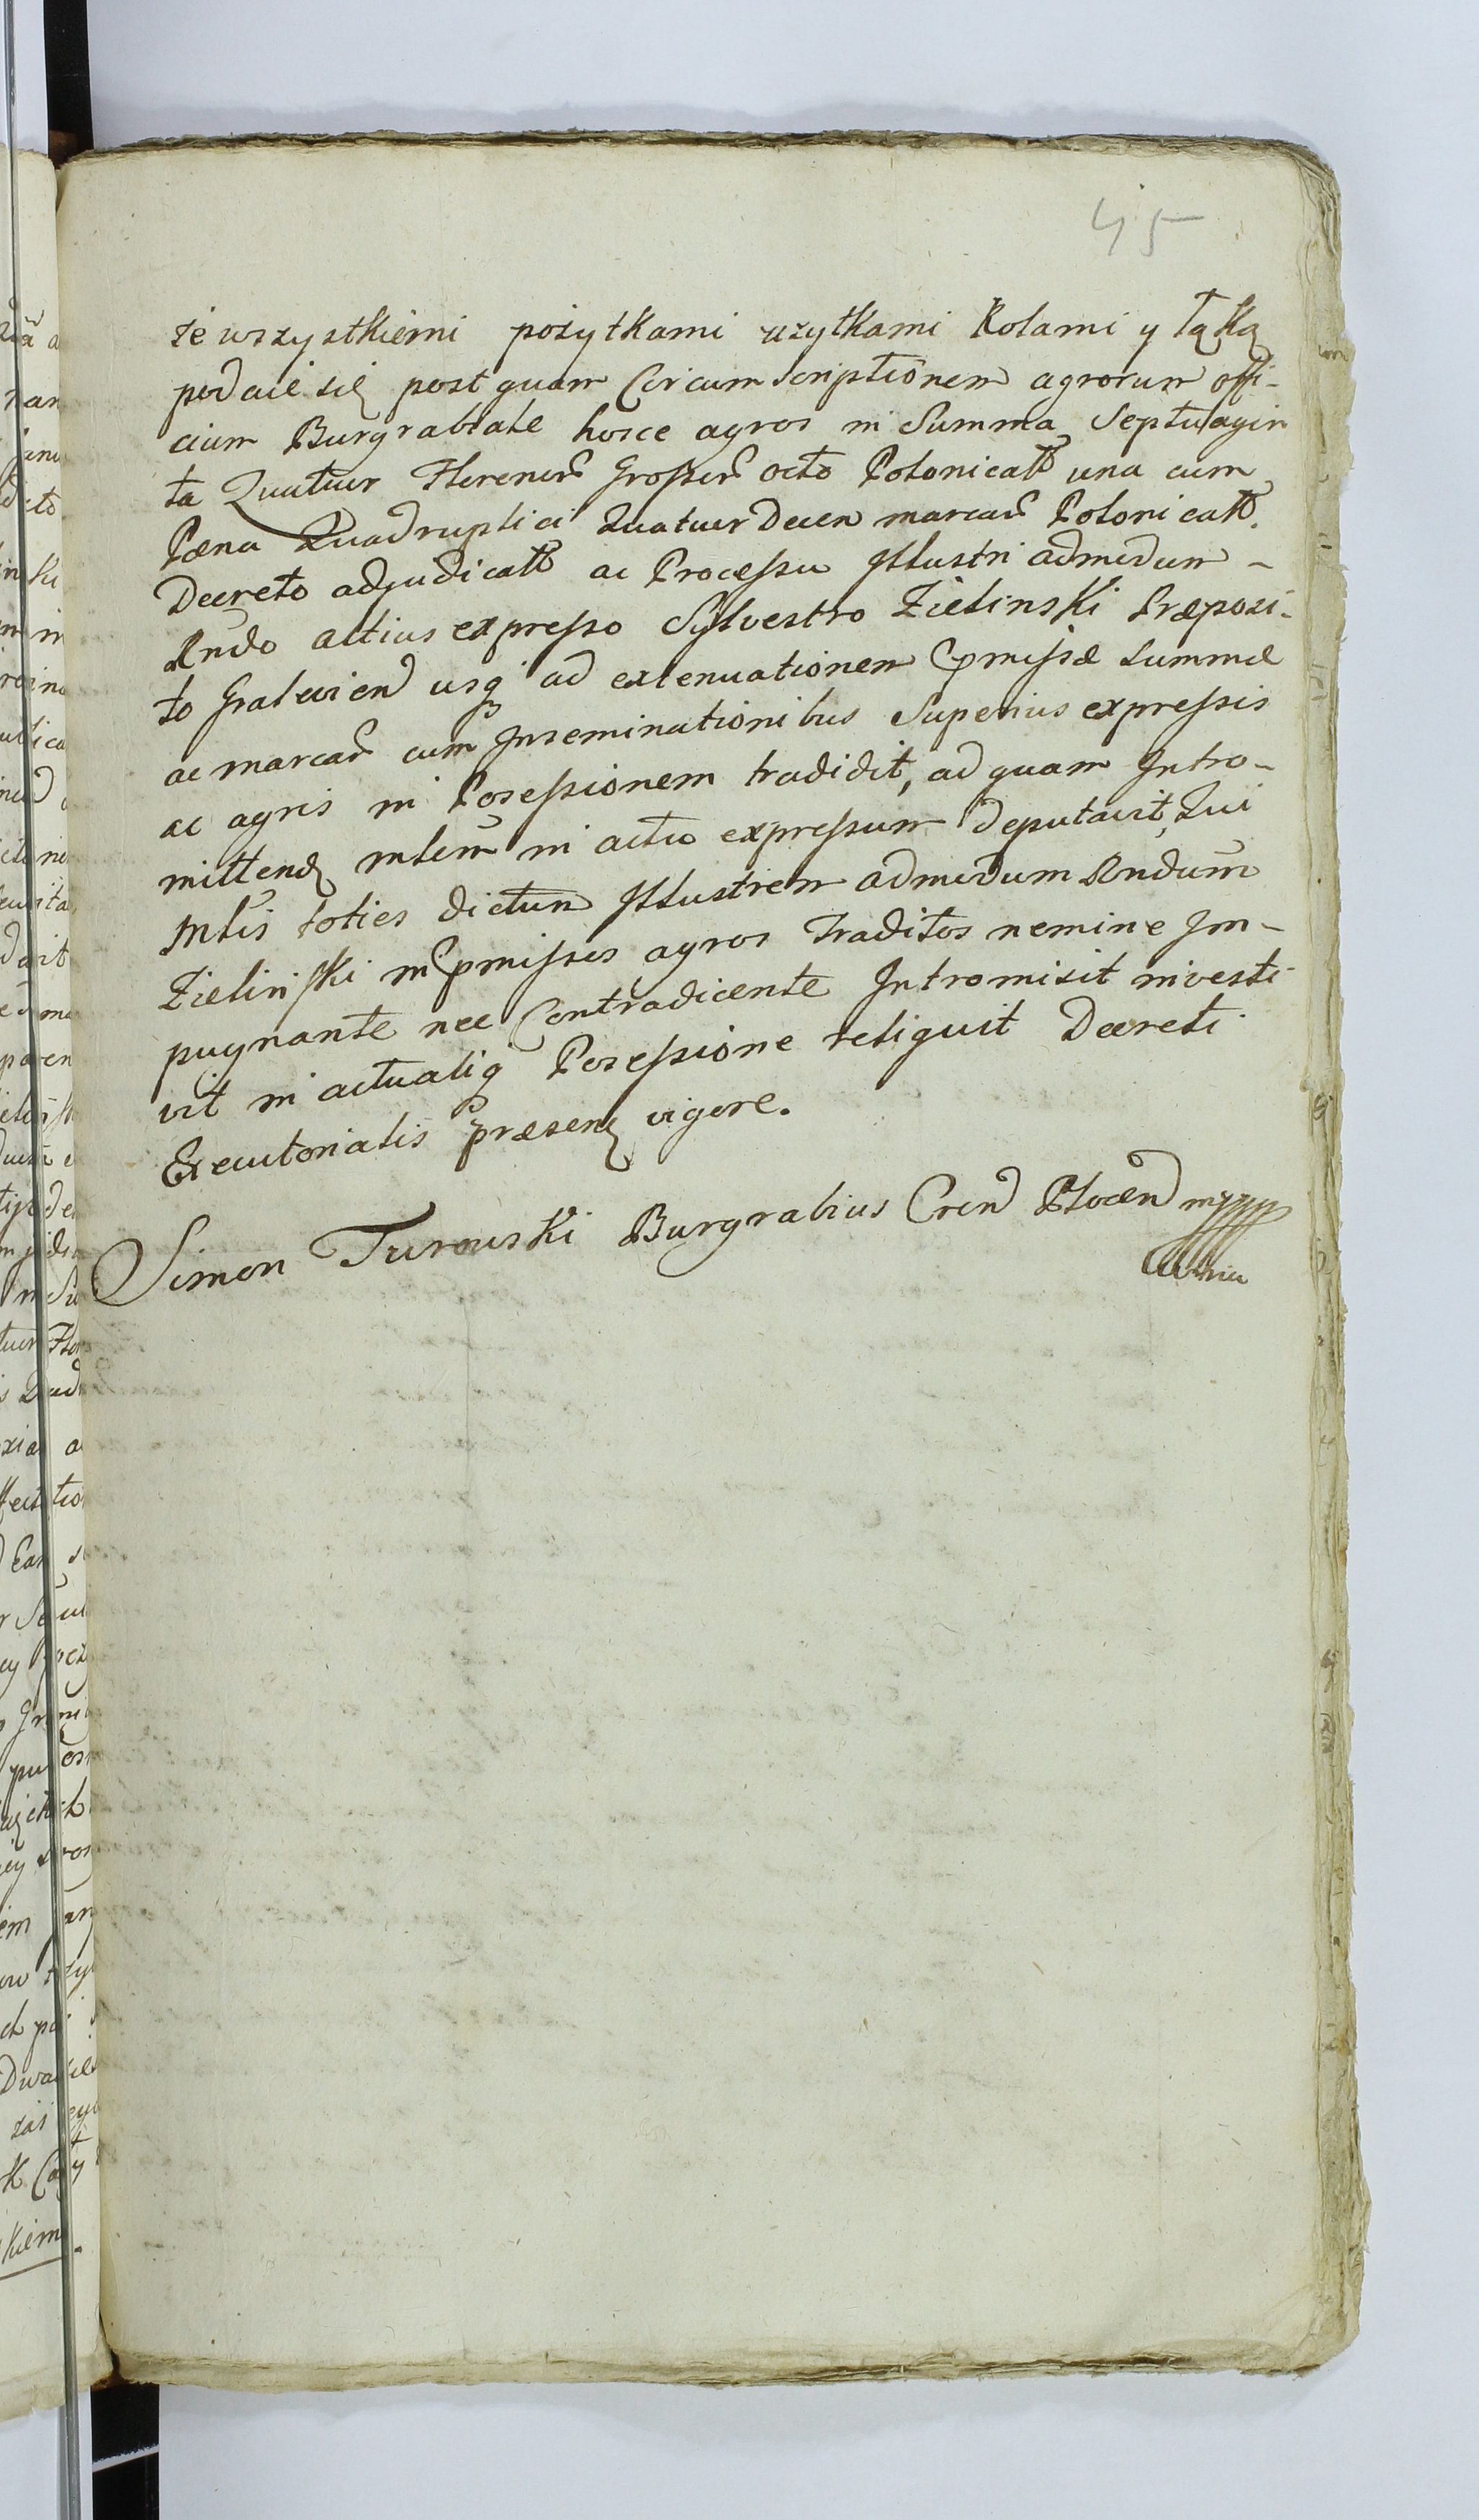 45
ze wszystkiemi pożytkami użytkami Rolami y łąką
podaie się post quam Circumscriptionem agrorum offi-
cium Burgrabiale hosce agros in Summa Septuagin
ta Quatuor Florenor Grossor octo Polonicall una cum
Pæna Quadruplici Quatuordecen marcar Polonicall.
Decreto adjudicall ac Processu Illustri admodum -
Rndo altius expresso Sylvestro Zielinski Præposi-
to Gralevien usq ad extenuationem pmissæ summæ
ac marcar cum Inseminationibus Superius expressis
ac agris in Posessionem tradidit, ad quam Intro-
mittend mlem in actu expressum deputavit, Qui
Mlis toties dictum Illustrem admodum Rndum
Zielinski in pmissos agros traditos nemine Im-
pugnante nec Contradicente Intromisit investi-
vit in actualiq Posessione reliquit Decreti
Executorialis præsen vigore.
Simon Turowski Burgrabius Cren Plocen mpp